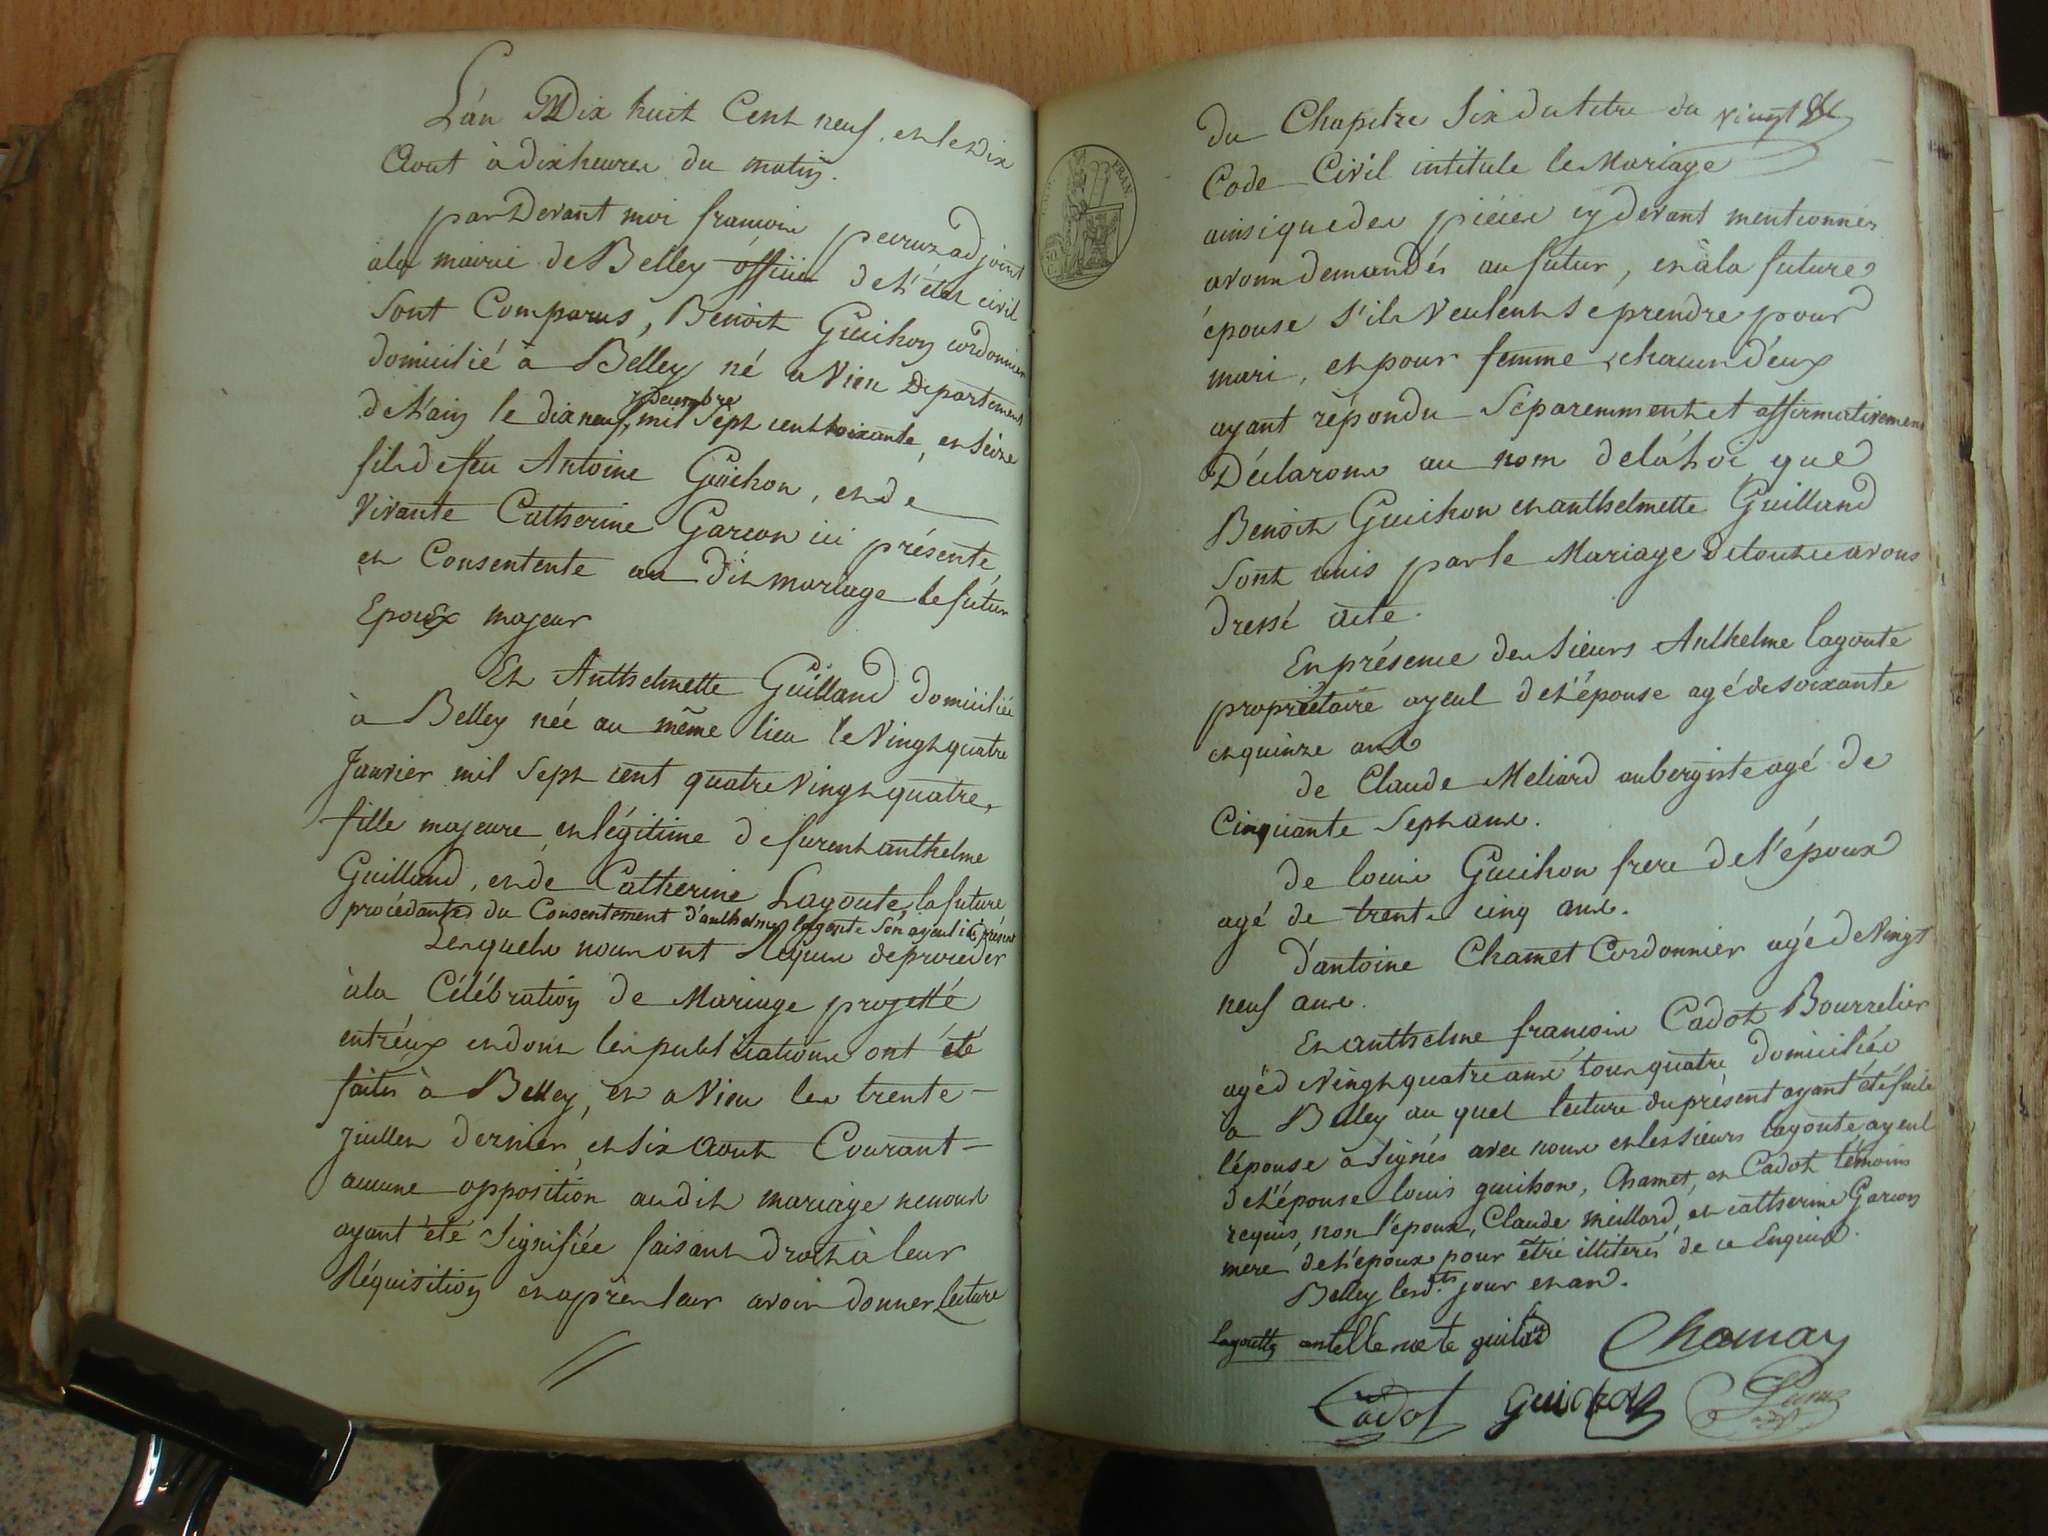 L'an Dix huit Cent neuf, et le dix
Aout à dix heures du matin.
par devant moi francois peruz adjoint
à la mairie de Belley officier de l'état civil
sont Comparus, Benoit Guichon cordonnier
domicilié à Belley né a Vieu Département
de l'ain le dix neuf Xbre decembre mil Sept cent soixante, et seize
fils de feu Antoine Guichon, et de
vivante Catherine Garcon ici présente,
et Consentente au dit mariage le futur
Epoux majeur
Et Anthelmette Guilland domiciliée
à Belley née au même lieu le Vingt quatre
Janvier mil Sept cent quatre Vingt quatre,
fille majeure et légitime de furent anthelme
Guilland, et de Catherine Lagoute, la future
procédante du Consentement d'anthelme lagoute son ayeul ici présent
Lesquels nous ont Requis de procéder
à la Célébration de Mariage projetté
entr'eux et dont les publications ont été
faites à Belley, et a Vieu les trente
juillet dernier, et six Aout Courant
aucune opposition au dit mariage ne nous
ayant été signifiée faisant droit à leur
Réquisition et après leur avoir donner Lecture
vingt
du Chapitre Six du titre du
Code Civil intitule le Mariage
ainsi que des pièces cy devant mentionnés
avons demandés au futur, et à la future
épouse s'ils veulent se prendre pour
mari, et pour femme chacun d'eux
ayant répondu Séparemment et affirmativement
Déclarons au nom de la loi que
Benoit Guichon et anthelmette Guilland
sont unis par le Mariage de tout ce avons
dressé acte.
En présence des sieurs Anthelme lagoute
propriétaire ayeul de l'épouse agé de soixante
et quinze ans
de Claude Meliard aubergiste agé de
Cinquante Sept ans.
de louis Guichon frere de l'époux
agé de trente cinq ans.
d'antoine Chamet Cordonnier agé de Vingt
neuf ans.
Et anthelme francois Cadot Bourrelier
agé de Vingt quatre ans tous quatre domiciliés
a Belley au quel lecture du présent ayant été faite
l'épouse à signés avec nous et les sieurs lagoute ayeul
de l'épouse louis guichon, Chamet, et Cadot témoins
requis, non l'époux, Claude meillard, et catherine Garcon
mere de l'époux pour être illiterés de ce Enquis.
Belley lesd.ts jour et an.
Lagoutte antellemete guiland Chamay
Cadot Guichon Peruz
adjt